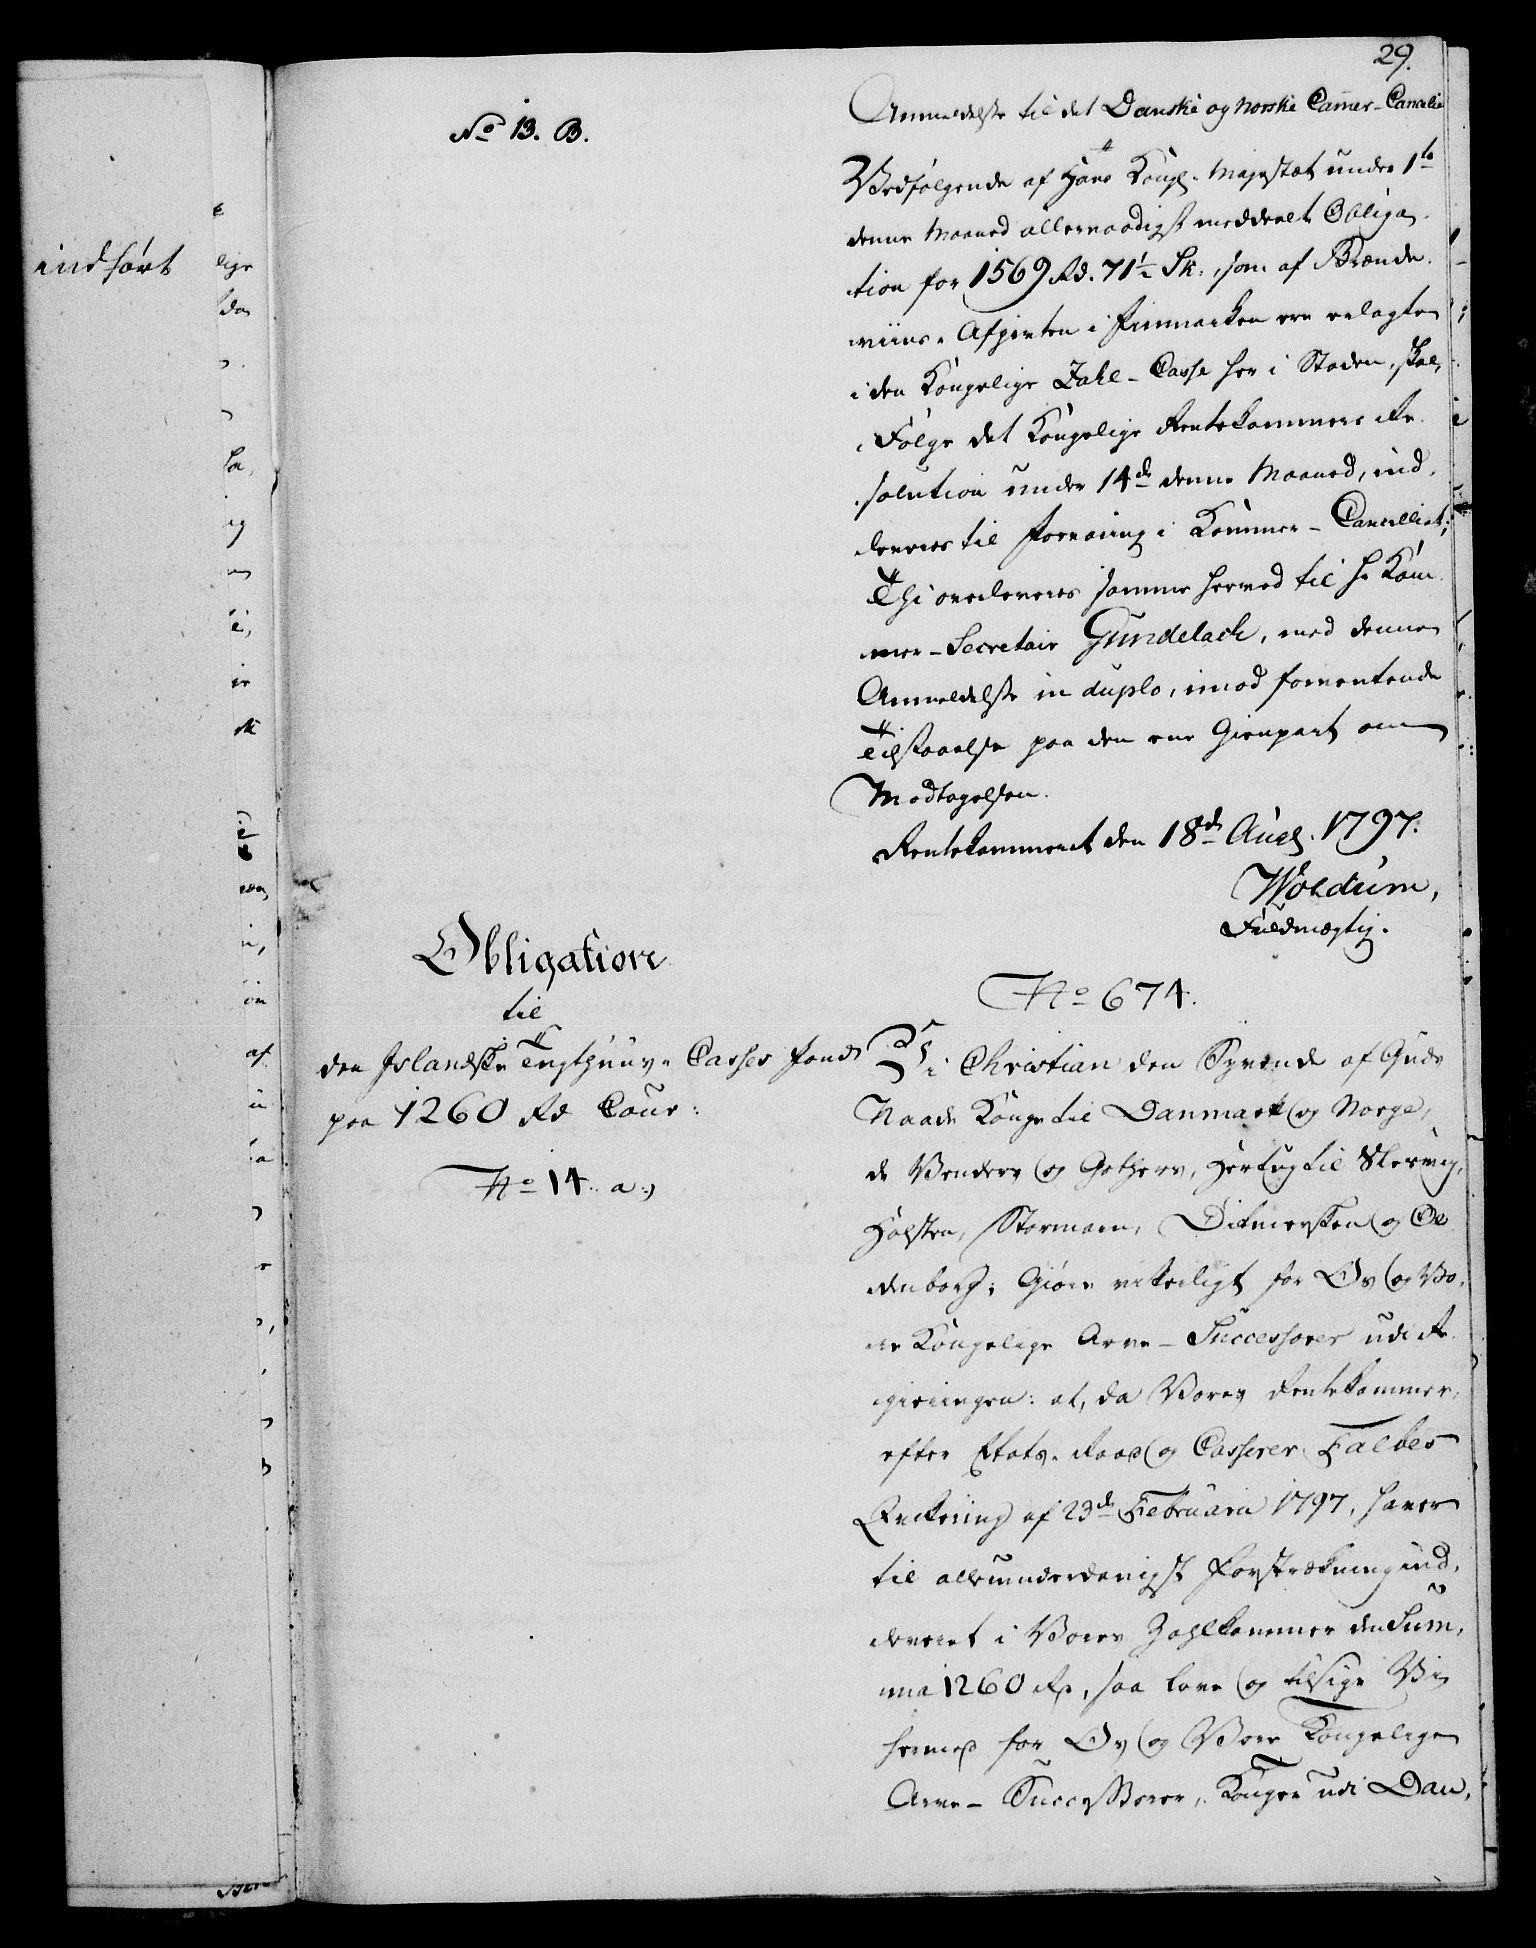 29.
No 13. B.
Anmeldelse til det Danske og Norske Camer-Cancelie
Vedfølgende af Hans Kongl. Majestæt under 1te
denne Maaned allernaadigst meddeelt Obliga-
tion for 1569 Rd. 71½ Sk:, som af Brænde-
viins-Afgivten i Finmarken ere erlagte
i den Kongelige Zahl-Casse her i Staden, skal,
ifølge det Kongelige Rentekammers Re-
solution under 14de denne Maaned, ind-
leveres til forvaring i Kammer-Cancelliet;
Thi overleveres samme hermed til Hr Kam-
mer-Secretair Gundelach, med denne
Anmeldelse in duplo, imod forventende
Tilstaaelse paa den ene Gienpart om
Modtagelsen.
Rentekammeret den 18de Aug. 1797.
Woldum,
Fuldmægtig.
Obligation
til
den Islandske Tugthuus-Casses fond
paa 1260 Rd Cour:
No 14. a.)
No 674.
Vi Christian den Syvende af Guds
Naade Konge til Danmark og Norge,
de Venders og Gothers, Hertug til Slesvig,
Holsten, Stormarn, Ditmersken og Ol-
denborg; Giøre vitterligt for Os og Vo-
re Kongelige Arve-Successorer udi Re-
gieringen: at, da Vores Rentekammer,
efter Etats-Raad og Casserer Falbes
Qvitering af 23de Februarii 1797, haver
til allerunderdanigst Forstrækning ind-
leveret i Vores Zahlkammer den Sum-
ma 1260 Rd, saa love og tilsige Vi
hermed for Os og Vore Kongelige
Arve-Successorer, Konger udi Dan-
indført